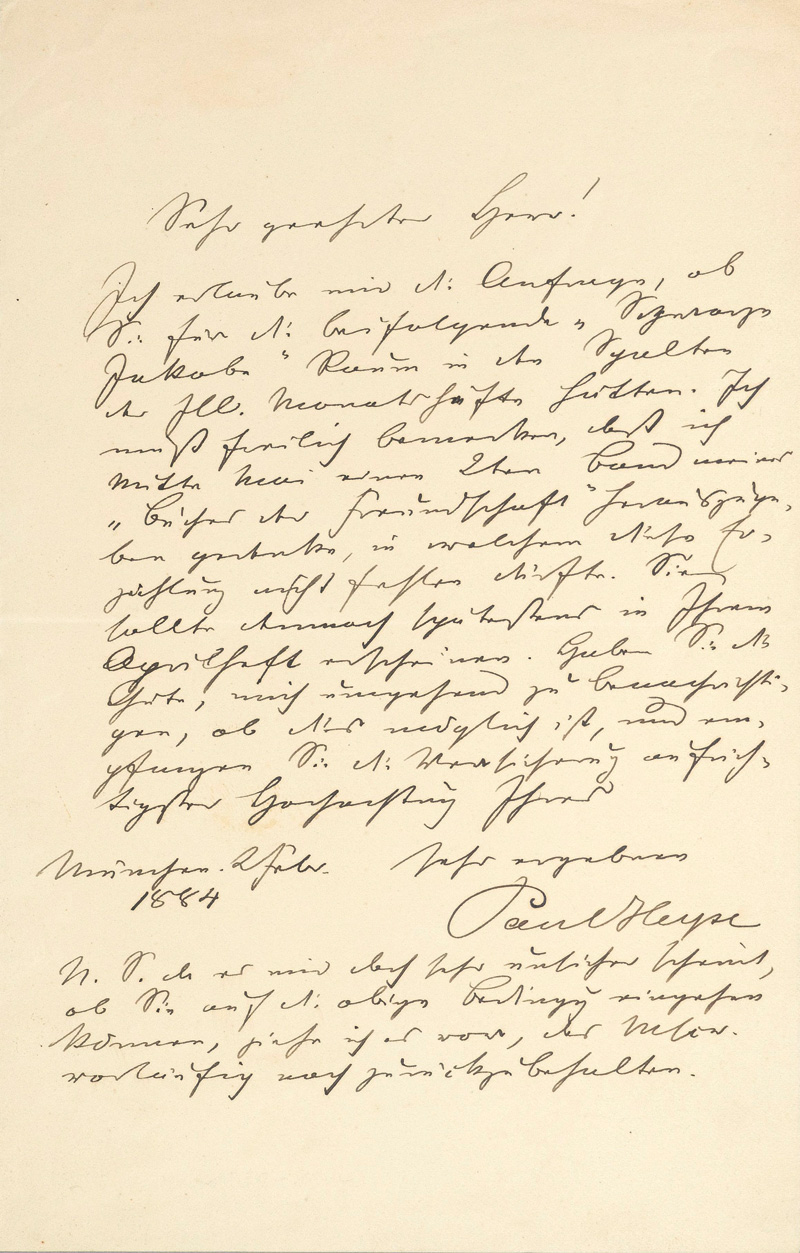 Sehr geehrter Herr!
Ich erlaube mir die Anfrage, ob
Sie für die beifolgende „Schwarze
Jakobe" Raum in den Spalten
der Ill. Monatshefte hätten. Ich
muß freilich bemerken, daß ich
Mitte Mai einen 2ten Band meines
„Buches der Freundschaft" herauszuge-
ben gedenke, in welchem diese Er-
zählung nicht fehlen dürfte. Sie
sollte demnach spätestens in Ihrem
Aprilheft erscheinen. Haben Sie die
Güte, mich umgehend zu benachrichti-
gen, ob dies möglich ist, und em-
pfangen Sie die Versicherung aufrich-
tigster Hochachtung Ihres
München. 2 Febr. sehr ergebenen
1884
Paul Heyse
N. S. da es mir doch sehr unsicher scheint,
ob Sie auf die obige Bedingg eingehen
können, ziehe ich es vor, das Mscr.
vorläufig noch zurückzubehalten.